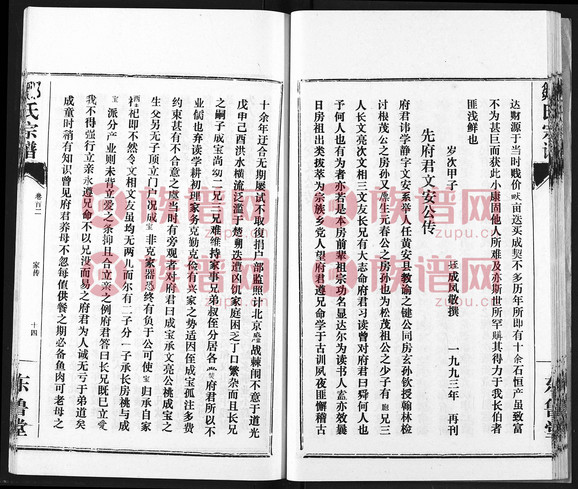 达财源于当时贱价 亩送买成契不多历年所即有十余石恒产虽致富
不为甚巨而获此小康固他人所难及亦斯世所罕 其得力于我长伯者
匪浅鲜也
先府君文安公传
岁次甲子
成凤敬撰 一九九三年 再刊
府君讳学静字文安系誉人任黄安县教谕之键公同房玄孙钦授翰林检
讨根茂公之房孙又 生元春公之房孙也为松茂祖公之少子有 兄三
人长文亮次文相三文友兄有大志命府君习读曾对府君曰舜何人也
予何人也有为者亦若是本房前辈祖宗功名显达尔为读书人 亦效曩
日房祖出类拔萃为宗族乡党人望府君遵兄命学于古训夙夜匪懈稽古
十余年还合无期屡试不取复捐户部监照计北京 战棘闱不意于道光
戊申己酉洪水横流泛滥于楚朔迭遭凶饥家庭困乏丁口繁杂而且长兄
之嗣子成宝尚幼二兄三兄难维持家事兄弟叔侄分居各 府君所以不
业儒也弃读学耕初理家务克勤克俭有兴家之势适因侄成宝孤注多费
约束甚有不合意之虞当时有旁观者对府君曰成宝承文亮公桃成宝之
生父另无子顶立门户况成宝非克家器恐终有负于公可使宝归承自家
祀即不然令文相文友虽均无两儿而尔有二子分一子承长房桃与成
宝派分产业则未背立爱之条抑且合立亲之例府君答曰长兄既已立爱
我不得强行立亲永遵兄命不以兄没而易之府君为人诚无亏于弟道矣
成童时稍有知识曾见府君养母不忍每值供餐之期必备鱼肉可老母之
氏宗谱
卷百二
家传
十四
东鲁堂
族谱网